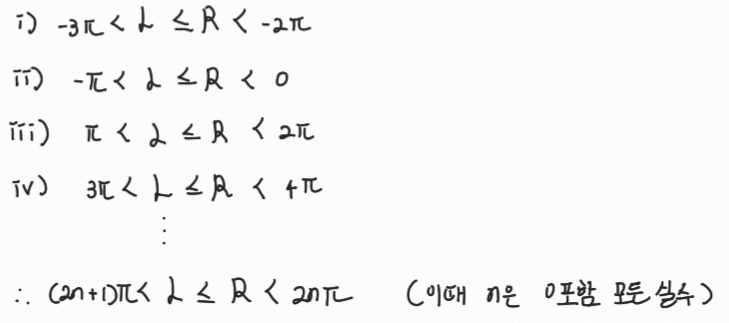 i) -3π < L ≤ R < -2π
ii) -π < L ≤ R < 0
iii) π < L ≤ R < 2π
iv) 3π < L ≤ R < 4π
⋮
∴ (2n+1)π < L ≤ R < 2nπ (이때 n은 0포함 모든 실수)